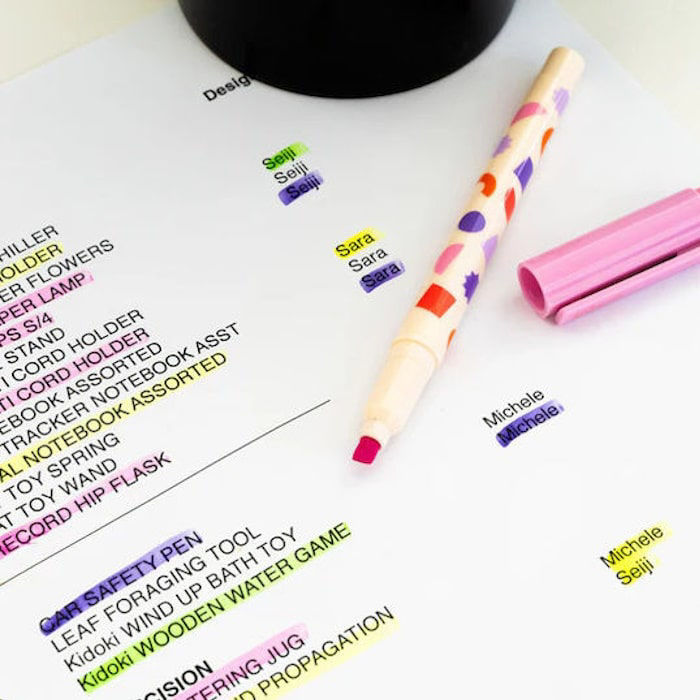 Desig
Seiji
Seiji
Seiji
Sara
Sara
Sara
HILLER
HOLDER
ER FLOWERS
PER LAMP
PS S/4
STAND
TI CORD HOLDER
TI CORD HOLDER
EBOOK ASSORTED
TRACKER NOTEBOOK ASST
AL NOTEBOOK ASSORTED
TOY SPRING
AT TOY WAND
RECORD HIP FLASK
Michele
Michele
Michele
Seiji
CAR SAFETY PEN
LEAF FORAGING TOOL
Kidoki WIND UP BATH TOY
Kidoki WOODEN WATER GAME
CISION
TERING JUG
ND PROPAGATION